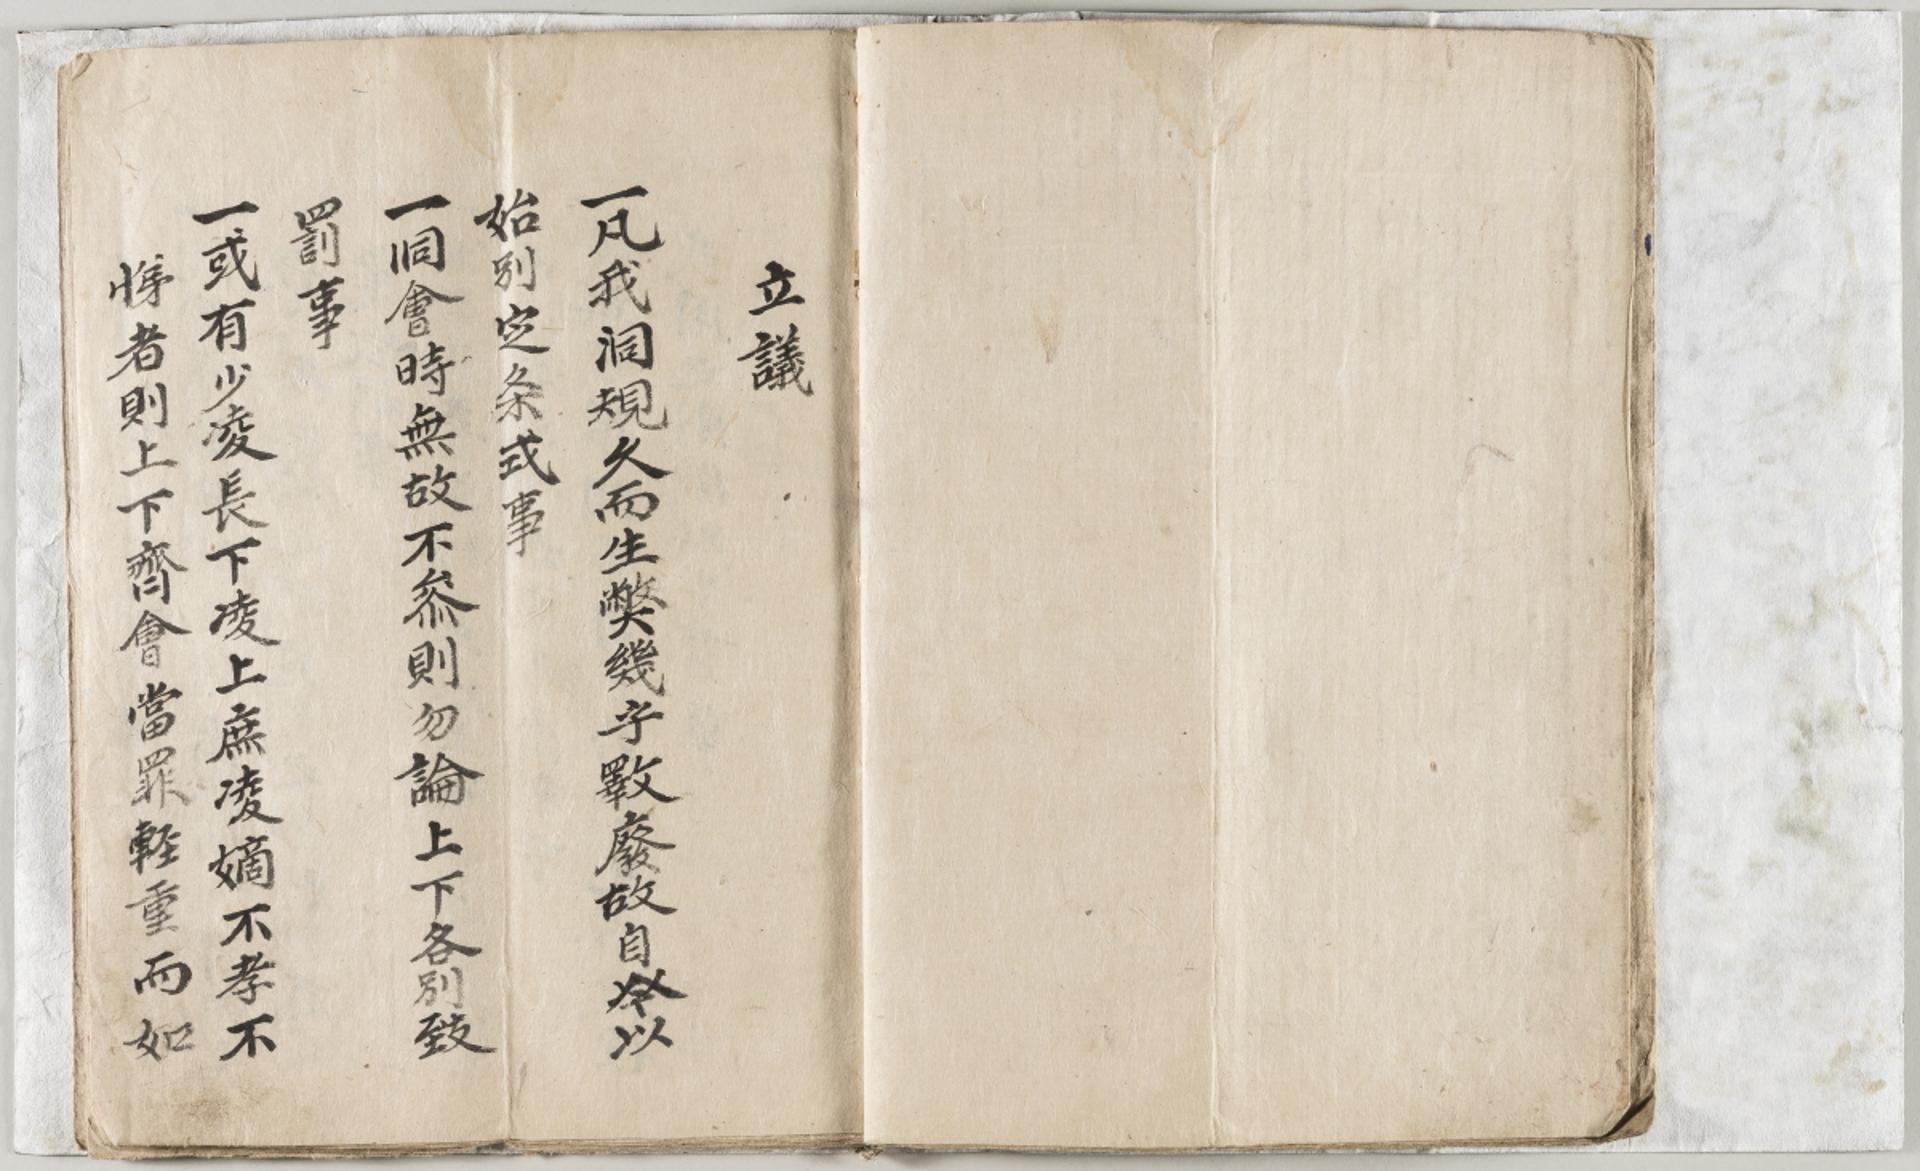 立議
一凡我洞規久而生獘幾乎斁廢故自今以
始別定条式事
一洞會時無故不叅則勿論上下各別致
罰事
一或有少凌長下凌上庶凌嫡不孝不
悌者則上下齊會當罪軽重而如